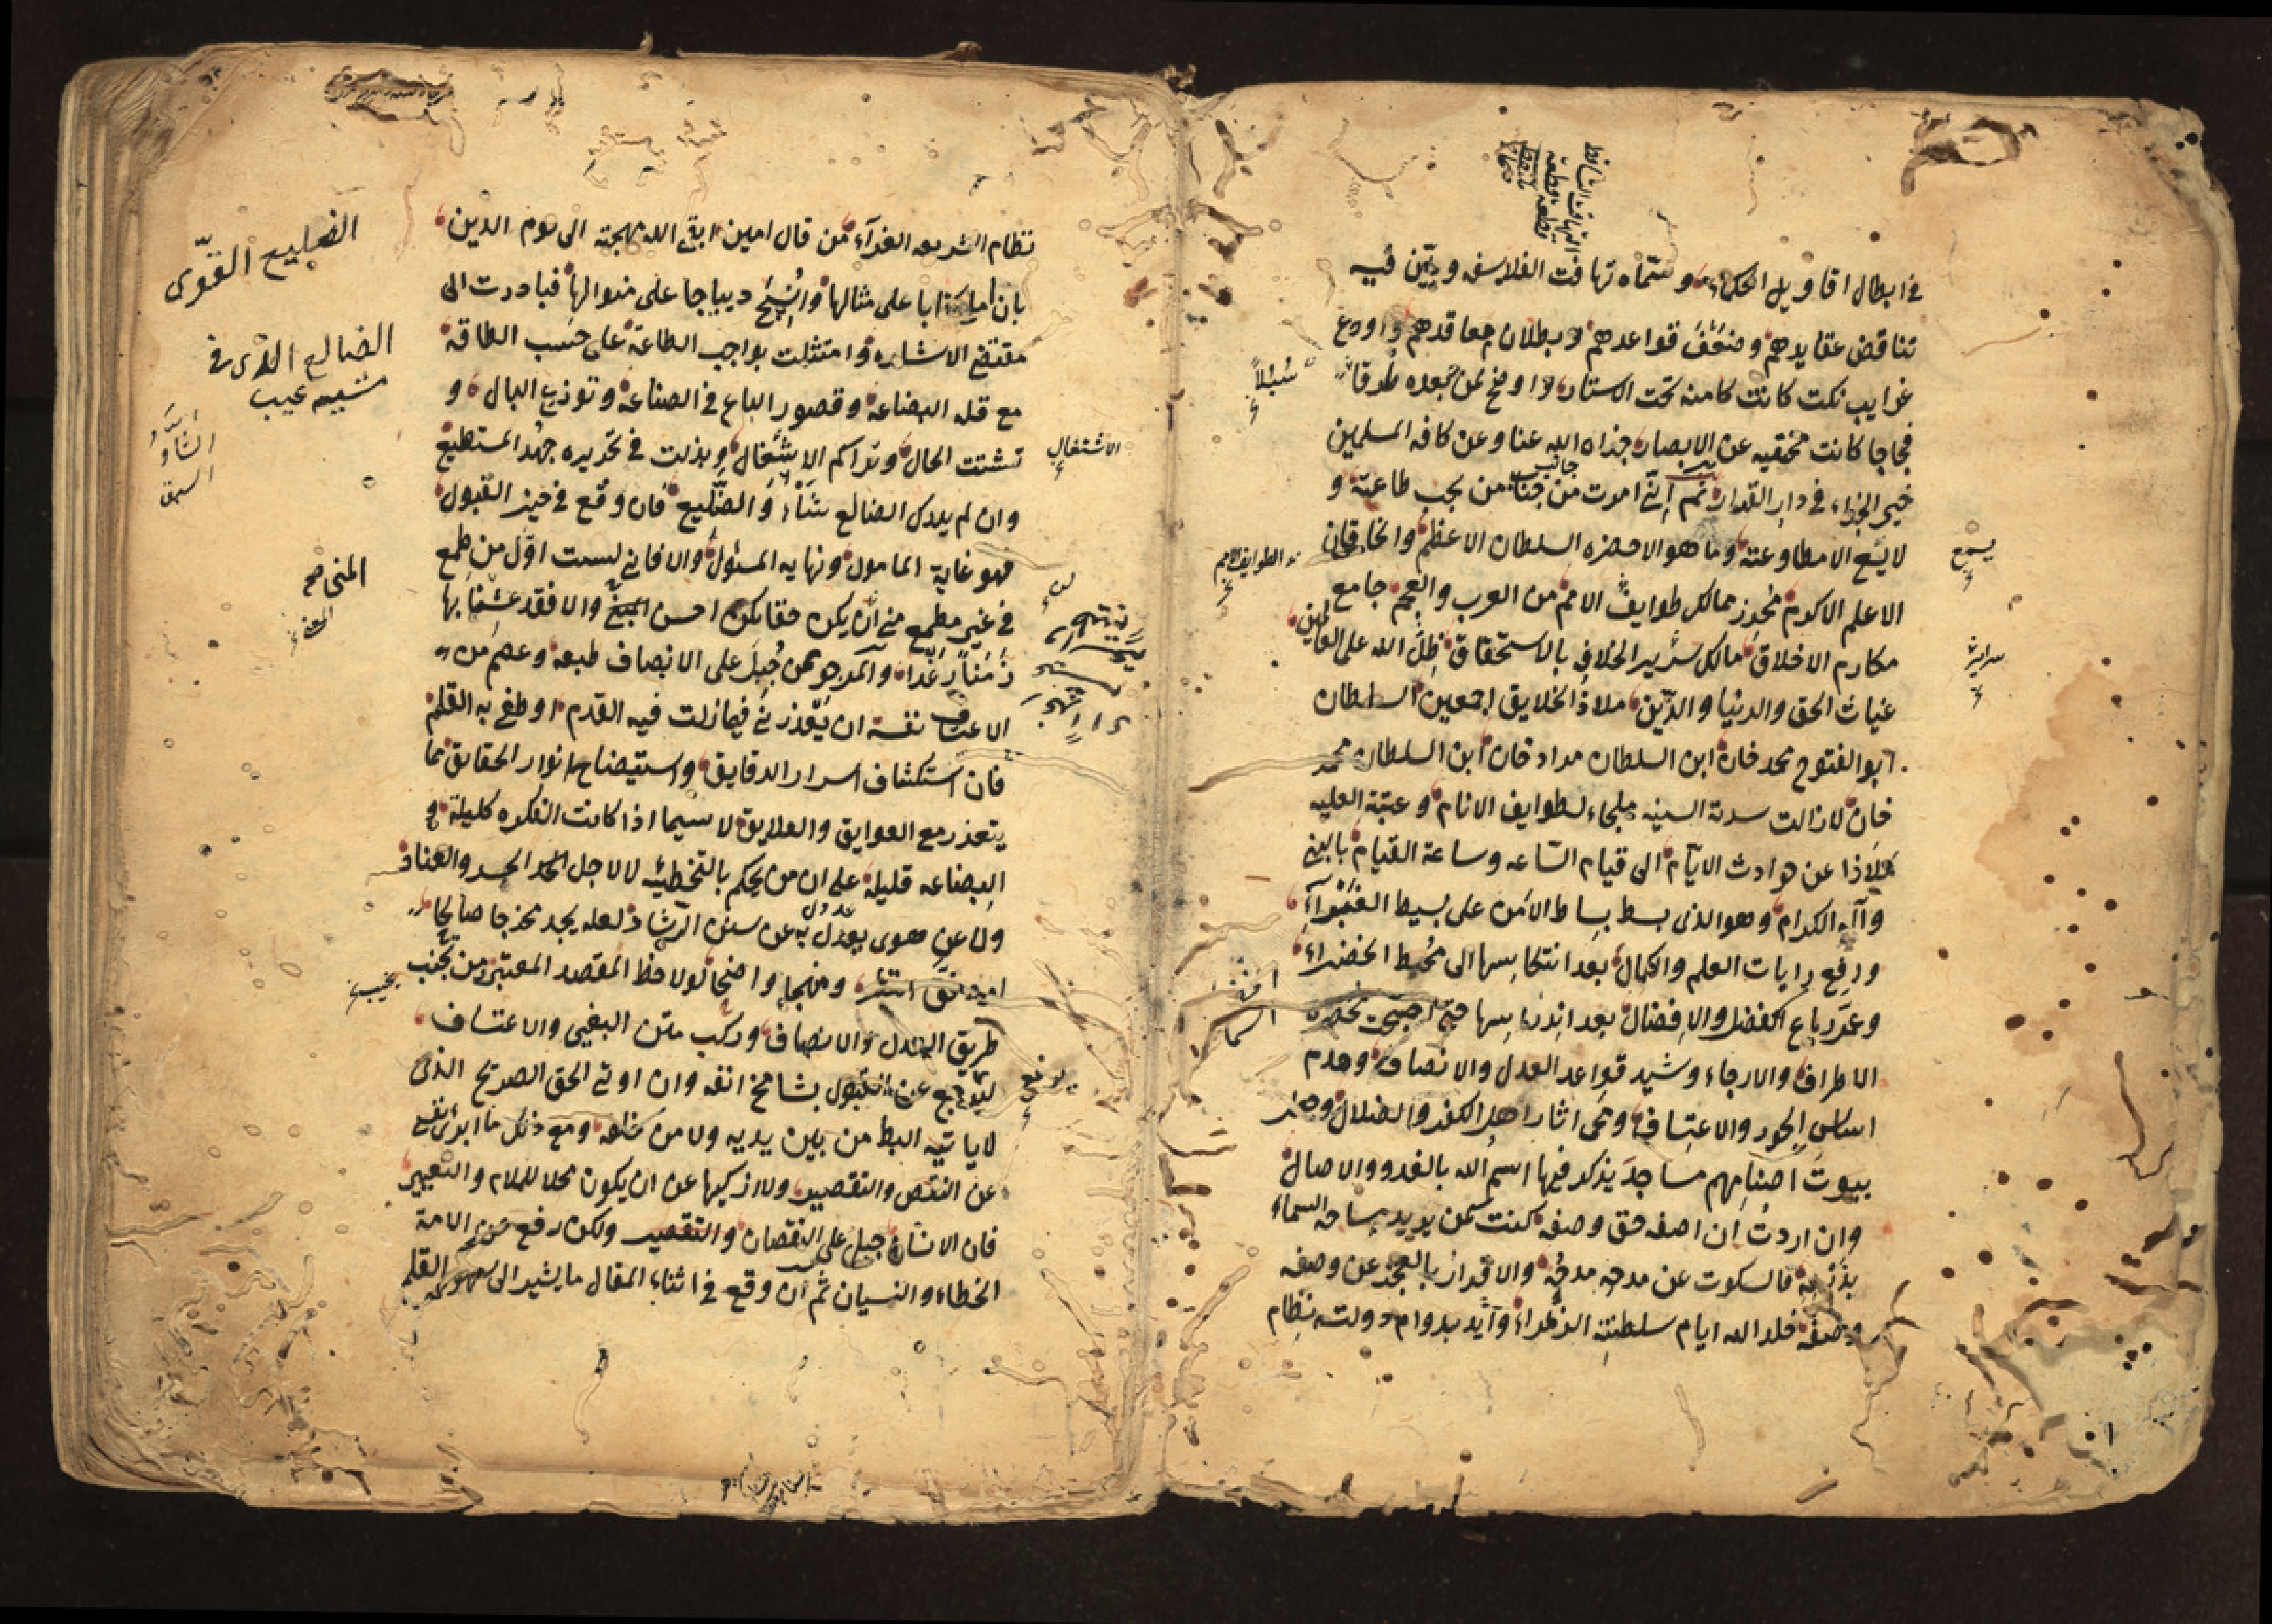 في ابطال اقاويل الحكماء وسماه تهافت الفلاسفه وبين فيه
تناقض عقايدهم وضعف قواعدهم وبطلان معاقدهم واودع
غرايب نكت كانت كامنه تحت الاستار واوضح لمن بعده طرقا
فجاجا كانت مختفيه عن الابصار جزاه الله عنا وعن كافه المسلمين
خير الجزاء في دار القرار ثم اني امرت من جناب من يجب طاعته و
لا يسع الا مطاوعته وما هو الا حضره السلطان الاعظم والخاقان
الاعلم الاكرم محرز ممالك طوايف الامم من العرب والعجم جامع
مكارم الاخلاق مالك سرير الخلافه بالاستحقاق ظل الله على العالمين
غياث الحق والدنيا والدين ملاذ الخلايق اجمعين السلطان
ابو الفتوح محمد خان ابن السلطان مراد خان ابن السلطان محمد
خان لا زالت سدته السنيه ملجاء لطوايف الانام وعتبة العليه
ملاذا عن حوادث الايام الى قيام الساعه وساعة القيام بالنبي
وآله الكرام وهو الذي بسط بساط الامن على بسيط الغبراء
ورفع رايات العلم والكمال بعد انتكاسها الى محيط الخضراء
وعمر رباع الفضل والافضال بعد اندراسها حتى
الاطراف والارجاء وشيد قواعد العدل والانصاف وهدم
اساس الجور والاعتساف ومحى اثار اهل الكفر والضلال وصير
بيوت اصنامهم مساجد يذكر فيها اسم الله بالغدو والاصال
وان اردت ان اصفه حق وصفه كنت كمن يريد مساحه السماء
فالسكوت عن مدحه مدحه والاقرار بالعجز عن وصفه
وصفه خلد الله ايام سلطنته الزهراء وايد بدوام دولته نظام
سبلا
يسع
الطوايف الامم
سرير
نظام الشريعه الغراء من قال امين ابقى الله مهجته الى يوم الدين
بان كتابا على مثالها وانسج ديباجا على منوالها فبادرت الى
مقتضى الاشاره وامتثلت بواجب الطاعة على حسب الطاقه
مع قله البضاعة وقصور الباع في الصناعة وتوزيع البال و
تشتت الحال وتراكم الاشغال وبذلت في تحريره جهد المستطيع
وان لم يدرك الضالع شأو الضليع فان وقع في حيز القبول
فهو غاية المامول ونهايه المسئول والا فاني لست اول من طمع
في غير مطمع منى ان يكن حقا يكن احسن المنى والا فقد عشنا بها
زمنا رغدا والمرجو ممن جبل على الانصاف طبعه وعصم من
الاعتساف نفسه ان يعذرني فيما زلت فيه القدم او طغى به القلم
فان استكشاف اسرار الدقايق واستيضاح انوار الحقايق مما
يتعذر مع العوايق والعلايق لا سيما اذا كانت الفكره كليلة و
البضاعه قليلة على ان من يحكم بالتخطيئه لا لاجل الحسد والعناد
ولا عن هوى يعدل به عن سنن الرشاد لعله يجد مخرجا صالحا
ومنهجا واضحا لولاحظ المقصد المعتبر ومن تجنب
طريق العدل والانصاف وركب متن البغي والاعتساف
عن القبول بشامخ انفه وان اوتي الحق الصريح الذي
لا ياتيه البط من بين يديه ولا من خلفه ومع ذلك ما ابرئ نفسي
عن النقص والتقصير ولا ازكيها عن ان يكون محلا للملام والتعيير
فان الانسان جبل على النقصان والتقصير ولكن رفع عن الامة
الخطاء والنسيان ثم ان وقع في اثناء المقال ما يشير الى سهو القلم
الضليع القوى
الضالع الذى في
مشيه عيب
الشأو
السبق
الاشتغال